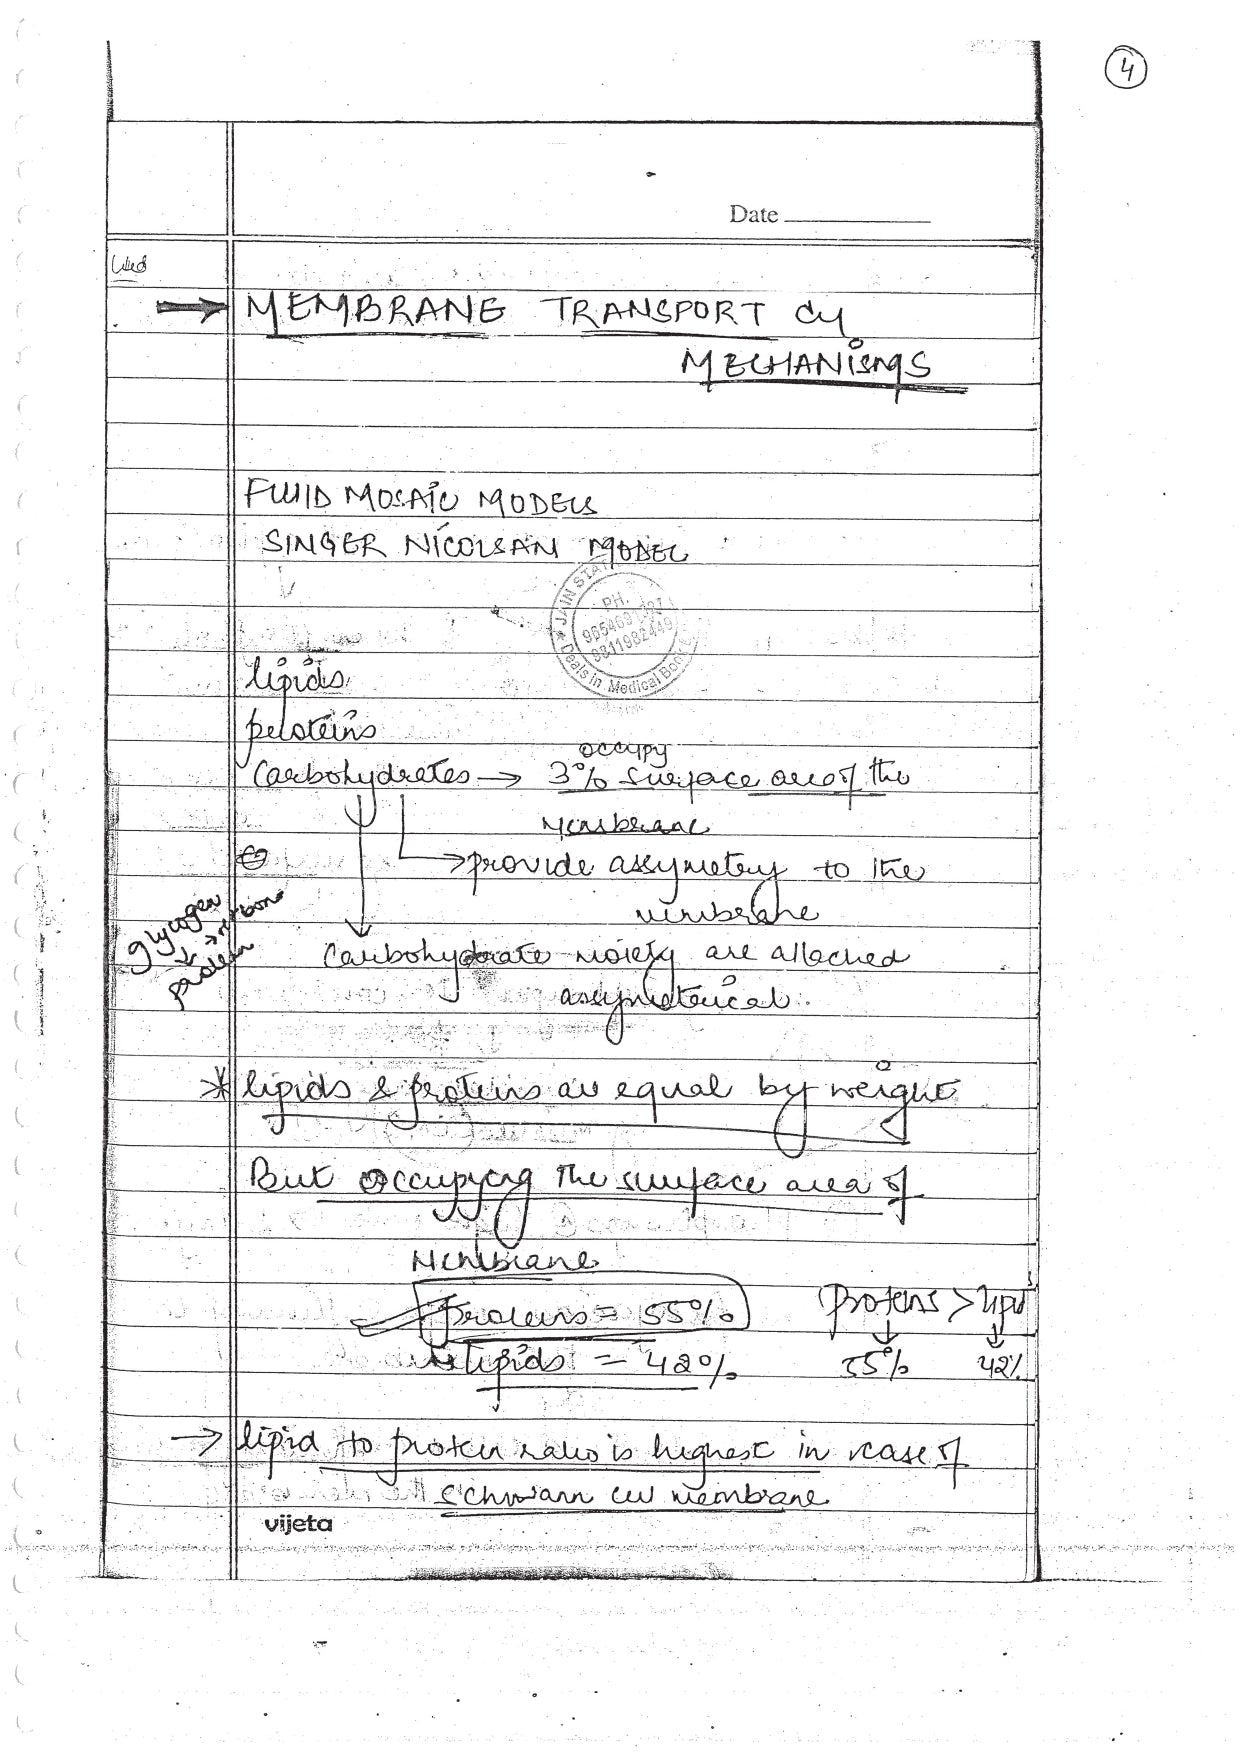 4
Date
MEMBRANE TRANSPORT
MECHANISMS
FLUID MOSAIC MODELS
SINGER NICOLSAN MODEL
JAIN STAT
PH.
9811982449
Deals in Medical Book
lipids
proteins
occupy
Carbohydrates → 3% surface area of the
Membrane
→ provide assymetry to the
membrane
glycogen
protein
Carbohydrate moiety are attached
assymetrical.
* lipids & proteins are equal by weight
But occupying the surface area of
Membrane
Proteins = 55%
Proteins > lipid
lipids = 42%
55% 42%
→ lipid to protein ratio is highest in case of
Schwann cell membrane
vijeta